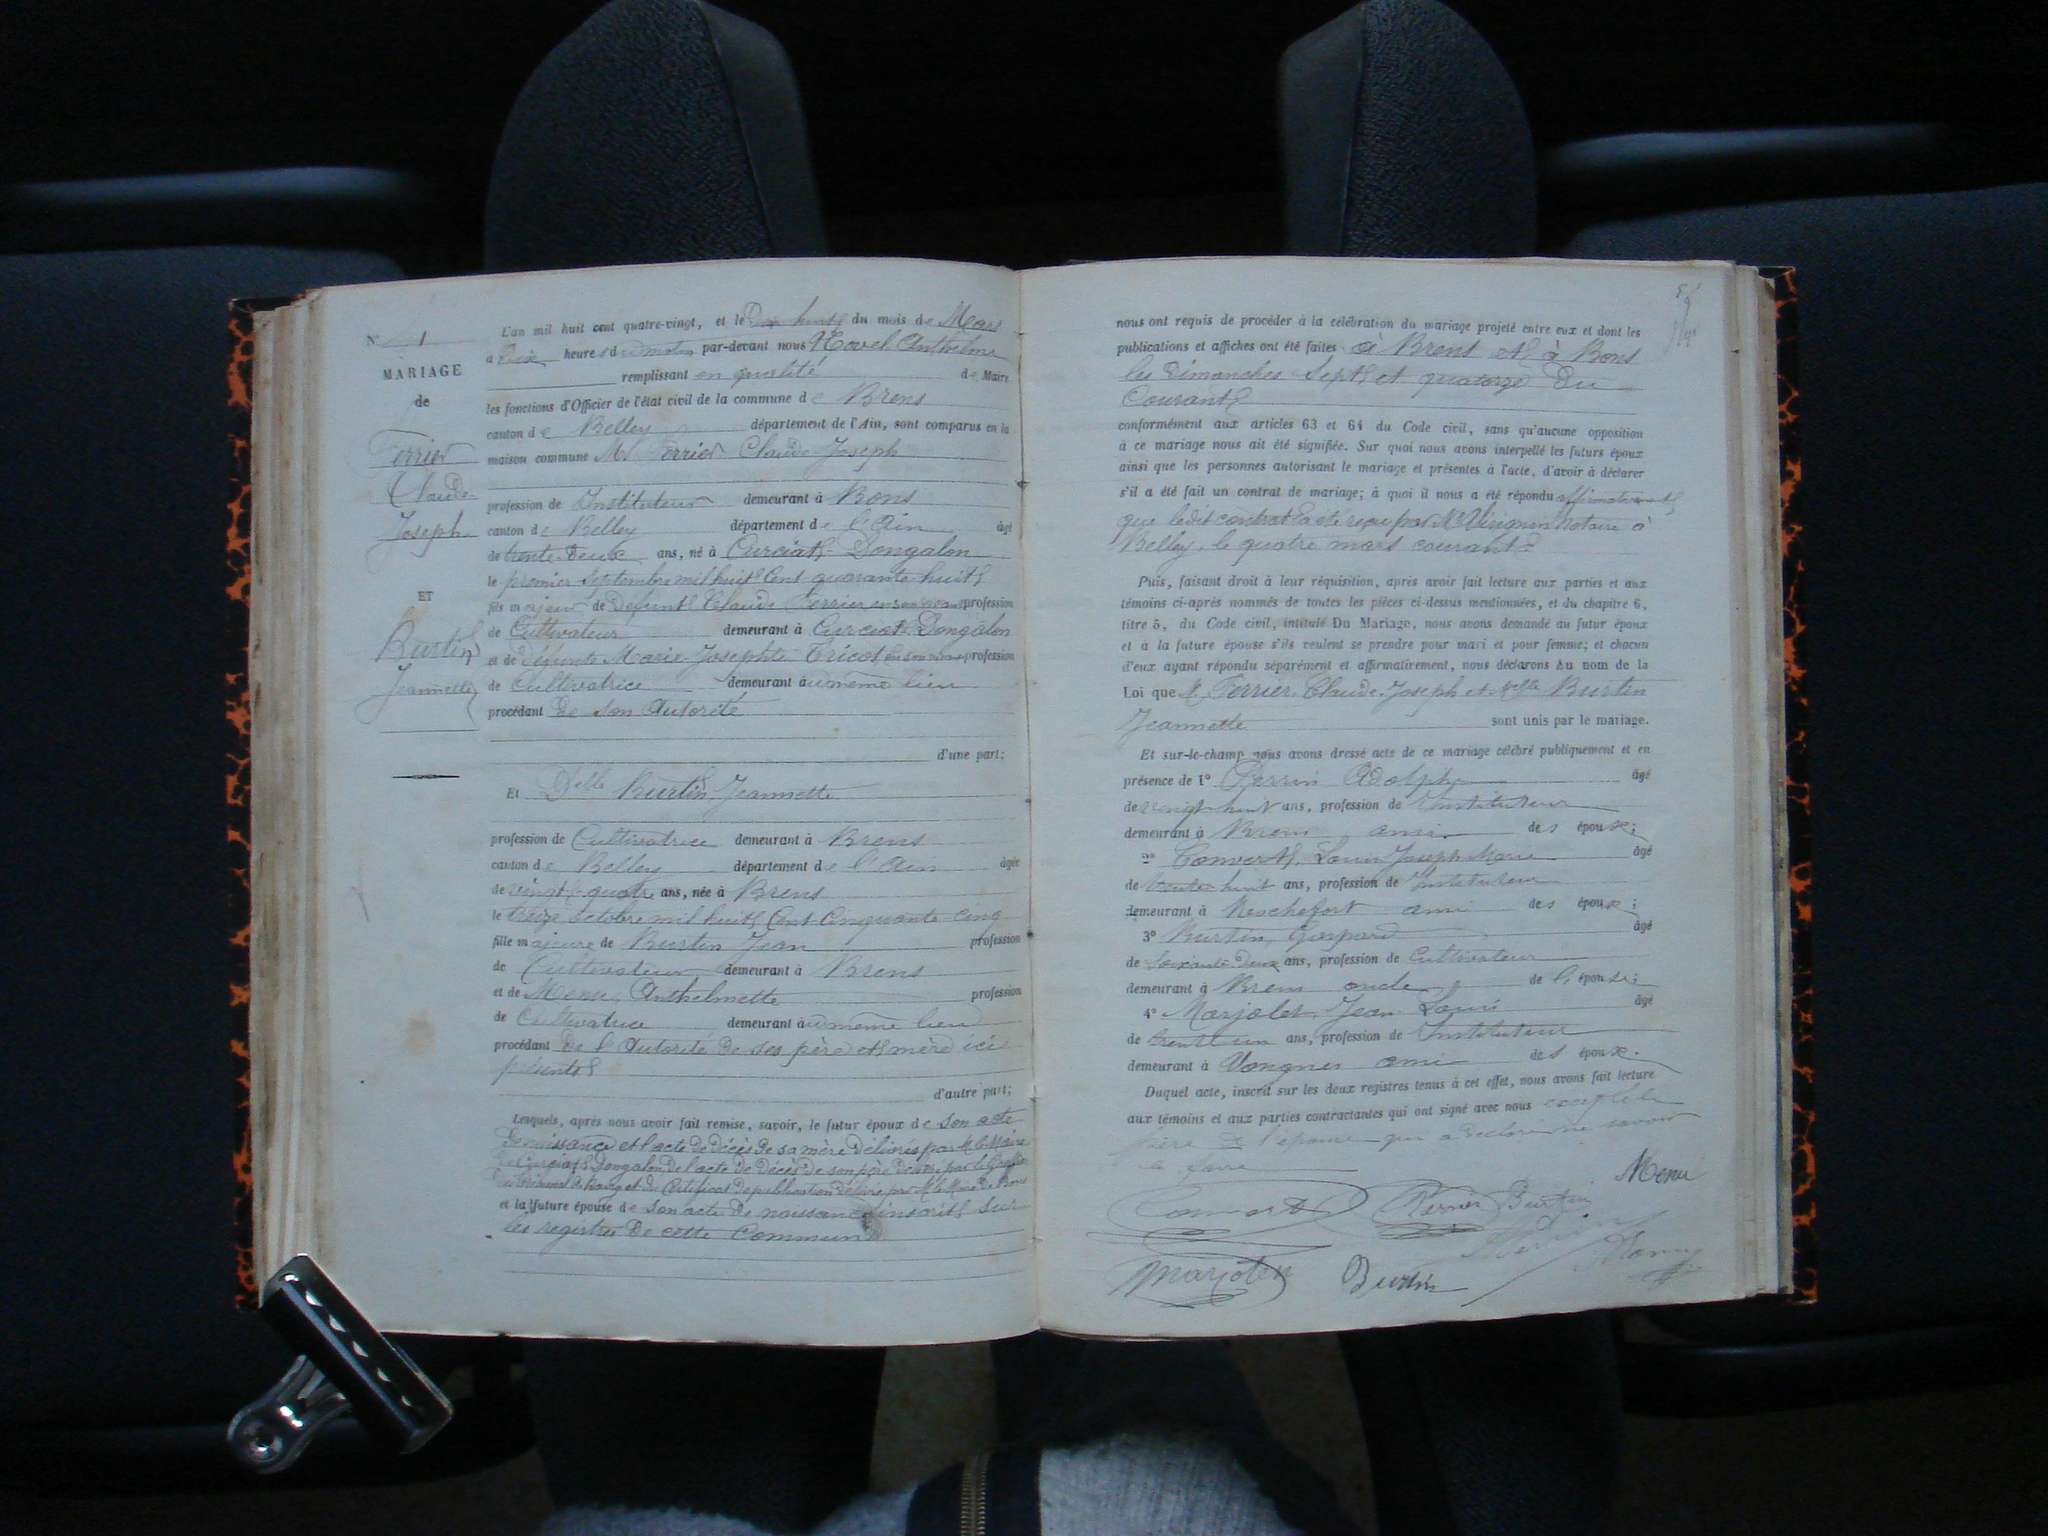 N° 1
MARIAGE
de
Ferrier
Claude
Joseph
ET
Burtin
Jeannette
L'an mil huit cent quatre-vingt, et le Dix huit du mois de Mars
à Dix heures du matin par-devant nous Hovel Anthelme
remplissant en qualité de Maire
les fonctions d'Officier de l'état civil de la commune de Brens
canton de Belley département de l'Ain, sont comparus en la
maison commune Mr Ferrier Claude Joseph
profession de Instituteur demeurant à Bons
canton de Belley département de l'Ain âgé
de trente Deux ans, né à Curciat-Dongalon
le premier Septembre mil huit Cent quarante huit
fils majeur de Défunt Claude Ferrier en son vivant profession
de Cultivateur demeurant à Curciat Dongalon
et de Défunte Marie Josephte Tricot en son vivant profession
de Cultivatrice demeurant au même lieu
procédant de son Autorité
d'une part;
Et Delle Burtin Jeannette
profession de Cultivatrice demeurant à Brens
canton de Belley département de l'Ain âgée
de vingt-quatre ans, née à Brens
le treize octobre mil huit Cent Cinquante-cinq
fille majeure de Burtin Jean profession
de Cultivateur demeurant à Brens
et de Menu Anthelmette profession
de Cultivatrice demeurant au même lieu
procédant de l'Autorité de ses père et mère ici
présents
d'autre part;
Lesquels, après nous avoir fait remise, savoir, le futur époux de son acte
de naissance et l'acte de Décès de sa mère Délivrés par M. le Maire
de Curciat Dongalon de l'acte de Décès de son père délivré par le Greffier
du tribunal de Bourg et du Certificat de publication délivré par M. le Maire de Bons
et la future épouse de son acte de naissance inscrit sur
les registres de cette Commune
nous ont requis de procéder à la célébration du mariage projeté entre eux et dont les
publications et affiches ont été faites à Brens et à Bons
les Dimanches Sept et quatorze Du
Courant
conformément aux articles 63 et 64 du Code civil, sans qu'aucune opposition
à ce mariage nous ait été signifiée. Sur quoi nous avons interpellé les futurs époux
ainsi que les personnes autorisant le mariage et présentes à l'acte, d'avoir à déclarer
s'il a été fait un contrat de mariage; à quoi il nous a été répondu affirmativement
que ledit contrat a été reçu par Me Notaire à
Belley, le quatre mars courant
Puis, faisant droit à leur réquisition, après avoir fait lecture aux parties et aux
témoins ci-après nommés de toutes les pièces ci-dessus mentionnées, et du chapitre 6,
titre 5, du Code civil, intitulé Du Mariage, nous avons demandé au futur époux
et à la future épouse s'ils veulent se prendre pour mari et pour femme; et chacun
d'eux ayant répondu séparément et affirmativement, nous déclarons Au nom de la
Loi que M. Ferrier Claude Joseph et Melle Burtin
Jeannette sont unis par le mariage.
Et sur-le-champ nous avons dressé acte de ce mariage célébré publiquement et en
présence de 1° Perrin Adolphe âgé
de vingt huit ans, profession de Instituteur
demeurant à Brens ami des époux;
2° Convert Louis Joseph Marie âgé
de trente huit ans, profession de Instituteur
demeurant à Reschefort ami des époux;
3° Burtin Gaspard âgé
de Soixante deux ans, profession de Cultivateur
demeurant à Brens oncle de l'épouse;
4° Marjolet Jean Louis âgé
de trente un ans, profession de Instituteur
demeurant à Vongnes ami des époux.
Duquel acte, inscrit sur les deux registres tenus à cet effet, nous avons fait lecture
aux témoins et aux parties contractantes qui ont signé avec nous excepté la
mère de l'épouse qui a déclaré ne savoir
le faire
Menu
Convert Ferrier Burtin
Marjolet Burtin